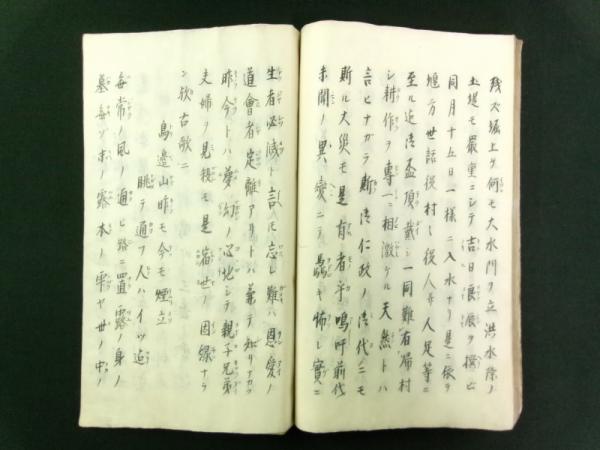 残穴堀上ケ何モ大水門ヲ立洪水除ノ
土堤モ嚴重ニシテ吉日良辰ヲ撰ヒ
同月十五日一様ニ入水ナリ是ニ依テ
堰方世話役村々役人并人足等ニ
至ル迄御盃頂戴シ一同難有帰村
シ耕作ヲ専ニ相激ケル天然トハ
言ヒナガラ斯御仁政ノ御代ニモ
斯ル大災モ是有者乎嗚呼前代
未聞ノ異変ニテ驚キ怖レ實ニ
生者必滅ト言ヘ𪜈忘レ難ハ恩愛ノ
道會者定離アリトハ兼テ知リナカラ
昨今トハ夢幻ノ心地シテ親子兄弟
夫婦ヲ見捨モ是濁世ノ因縁ナラ
ン欤古歌ニ
鳥邊山昨モ今モ煙立
眺テ通フ人ハイツ迄
毎常ノ風ノ通ヒ路ニ置露ノ身ノ
墓毎ゾホノ露本ノ雫ヤ世ノ中ノ